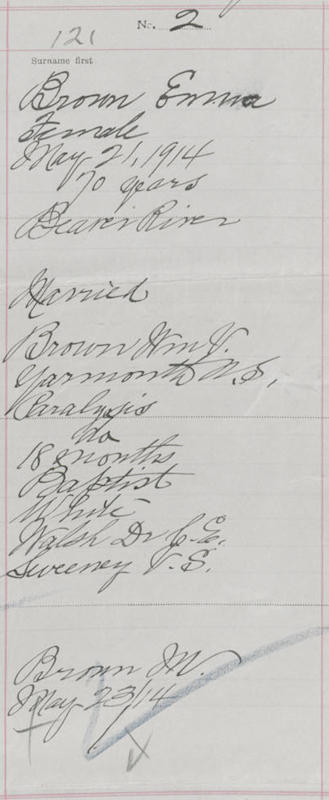 121
No. 2
Surname first
Brown Emma
Female
May 21, 1914
70 years
Beaver River
Married
Brown Wm V.
Yarmouth N.S.
Paralysis
No
18 months
Baptist
White
Walsh Dr J. E.
Sweeney V. S.
Brown M.
May 23/14